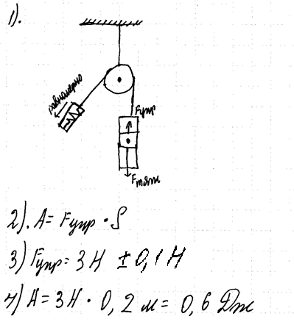 1).
равномерно
Fупр
Fтяж
2). A = Fупр · S
3) Fупр = 3 Н ± 0,1 Н
4) A = 3 Н · 0,2 м = 0,6 Дж